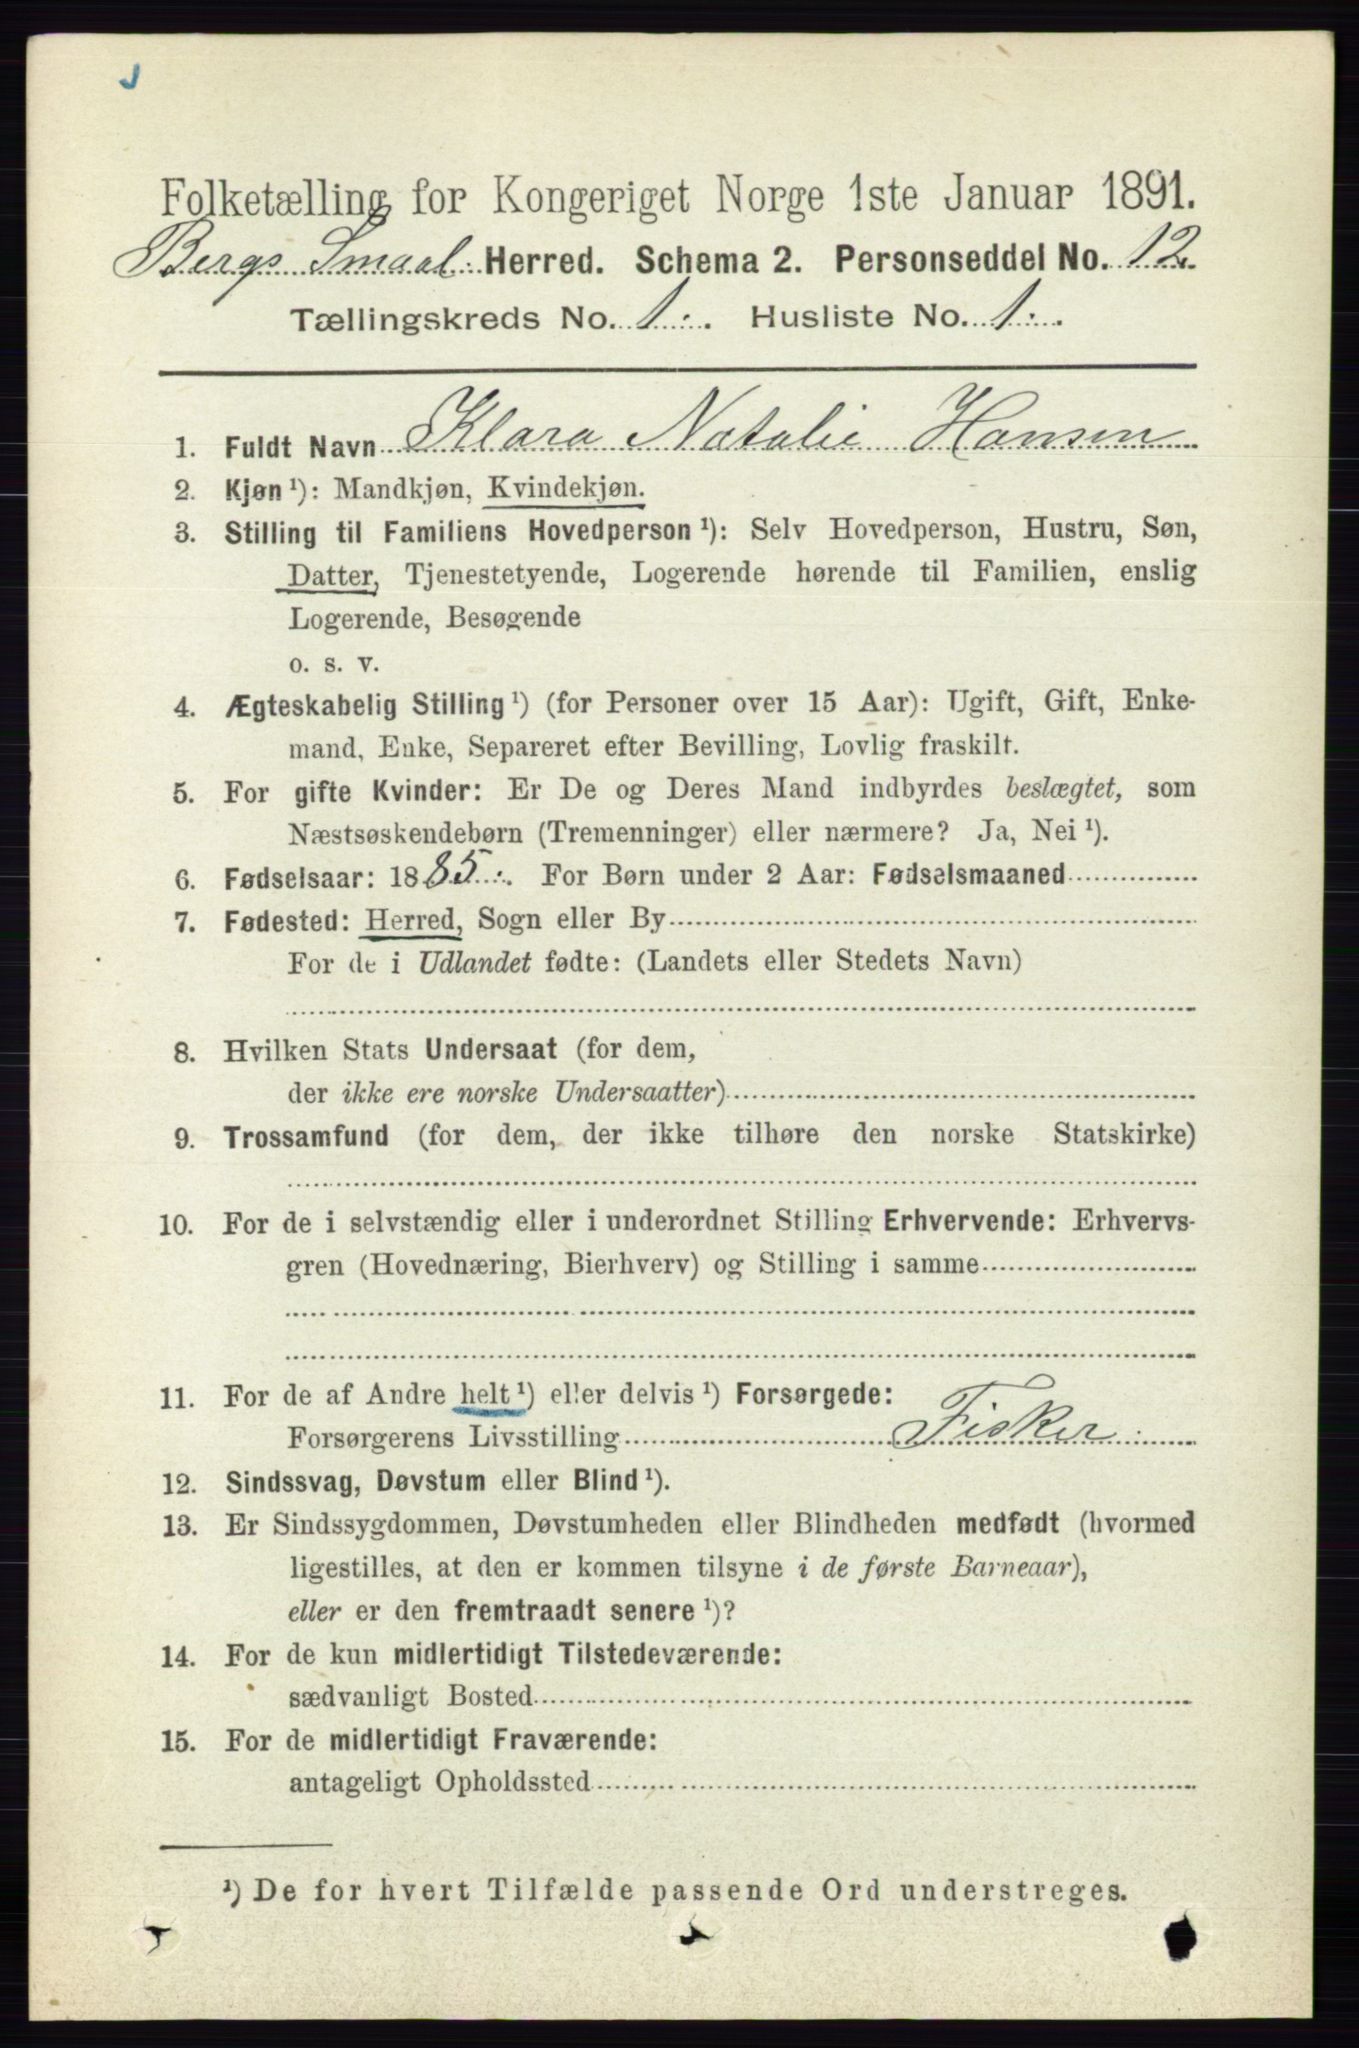 Folketælling for Kongeriget Norge 1ste Januar 1891.
Bergs Smaal. Herred. Schema 2. Personseddel No. 12
Tællingskreds No. 1. Husliste No. 1.
1. Fuldt Navn Klara Natalie Hansen
2. Kjøn ¹): Mandkjøn, Kvindekjøn.
3. Stilling til Familiens Hovedperson ¹): Selv Hovedperson, Hustru, Søn,
Datter, Tjenestetyende, Logerende hørende til Familien, enslig
Logerende, Besøgende
o. s. v.
4. Ægteskabelig Stilling ¹) (for Personer over 15 Aar): Ugift, Gift, Enke-
mand, Enke, Separeret efter Bevilling, Lovlig fraskilt.
5. For gifte Kvinder: Er De og Deres Mand indbyrdes beslægtet, som
Næstsøskendebørn (Tremenninger) eller nærmere? Ja, Nei ¹).
6. Fødselsaar: 1885. For Børn under 2 Aar: Fødselsmaaned
7. Fødested: Herred, Sogn eller By
For de i Udlandet fødte: (Landets eller Stedets Navn)
8. Hvilken Stats Undersaat (for dem,
der ikke ere norske Undersaatter)
9. Trossamfund (for dem, der ikke tilhøre den norske Statskirke)
10. For de i selvstændig eller i underordnet Stilling Erhvervende: Erhvervs-
gren (Hovednæring, Bierhverv) og Stilling i samme
11. For de af Andre helt ¹) eller delvis ¹) Forsørgede:
Forsørgerens Livsstilling Fisker
12. Sindssvag, Døvstum eller Blind ¹).
13. Er Sindssygdommen, Døvstumheden eller Blindheden medfødt (hvormed
ligestilles, at den er kommen tilsyne i de første Barneaar),
eller er den fremtraadt senere ¹)?
14. For de kun midlertidigt Tilstedeværende:
sædvanligt Bosted
15. For de midlertidigt Fraværende:
antageligt Opholdssted
¹) De for hvert Tilfælde passende Ord understreges.